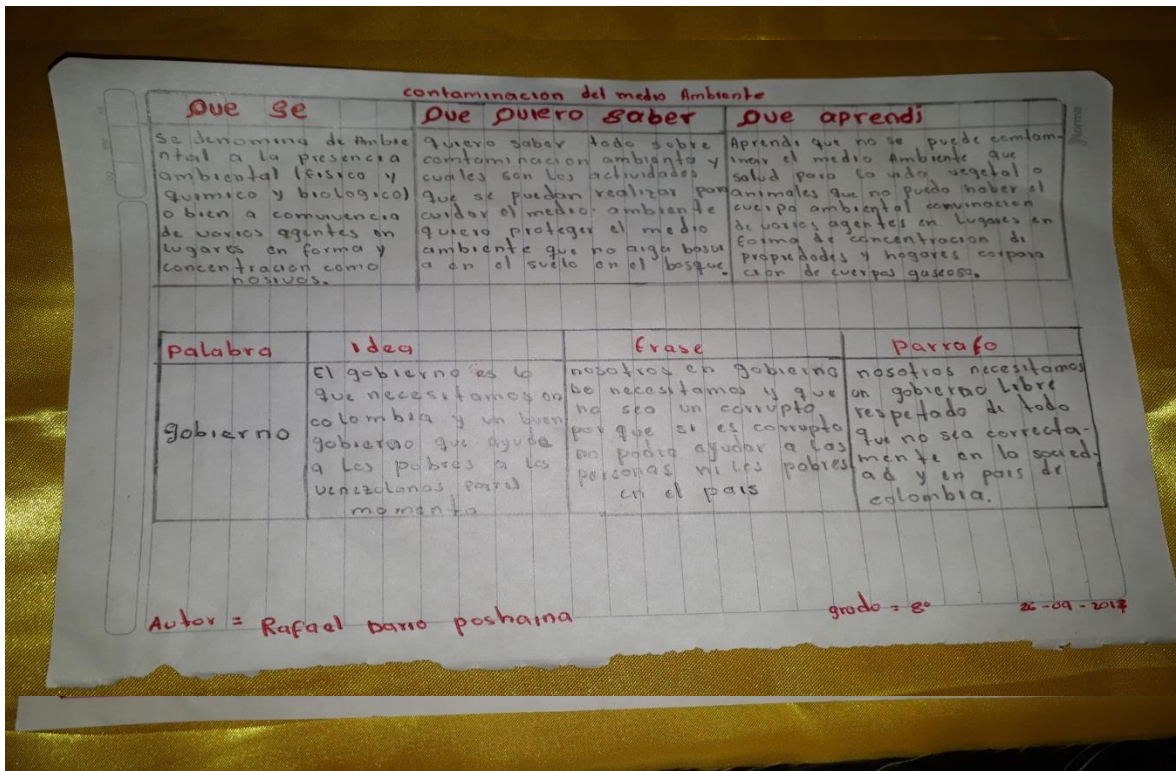 contaminacion del medio Ambiente
Que se
Se denomina de Ambie
ntal a la presencia
ambiental (fisico y
quimico y biologico)
o bien a comvivencia
de varios agentes en
lugares en forma y
concentracion como
nosivos.
Que Quiero saber
quiero saber todo sobre
comtaminacion ambienta y
cuales son las actividades
que se puedan realizar por
cuidar el medio ambiente
quiero proteger el medio
ambiente que no aiga basur
a en el suelo en el bosque.
Que aprendi
Aprendi que no se puede comtam-
inar el medio Ambiente que
salud para la vida vegetal o
animales que no puedo haber el
cuerpo ambiental convinacion
de varios agentes en Lugares en
forma de concentracion di
propiedades y hogares
cion de cuerpos gaseoso.
Palabra
gobierno
idea
El gobierno es lo
que necesitamos en
colombia y un buen
gobierno que ayude
a los pobres a los
venezolanos
momento
frase
nosotros en gobierno
be necesitamos y que
no sea un corrupto
por que si es corrupto
no podra ayudar a las
personas ni los pobres
en el pais
parrafo
nosotros necesitamos
un gobierno Libre
respetado de todo
que no sea correcta-
mente en la socied-
ad y en pais de
colombia.
Autor = Rafael Dario poshaina
grado = 8°
26-09-2017